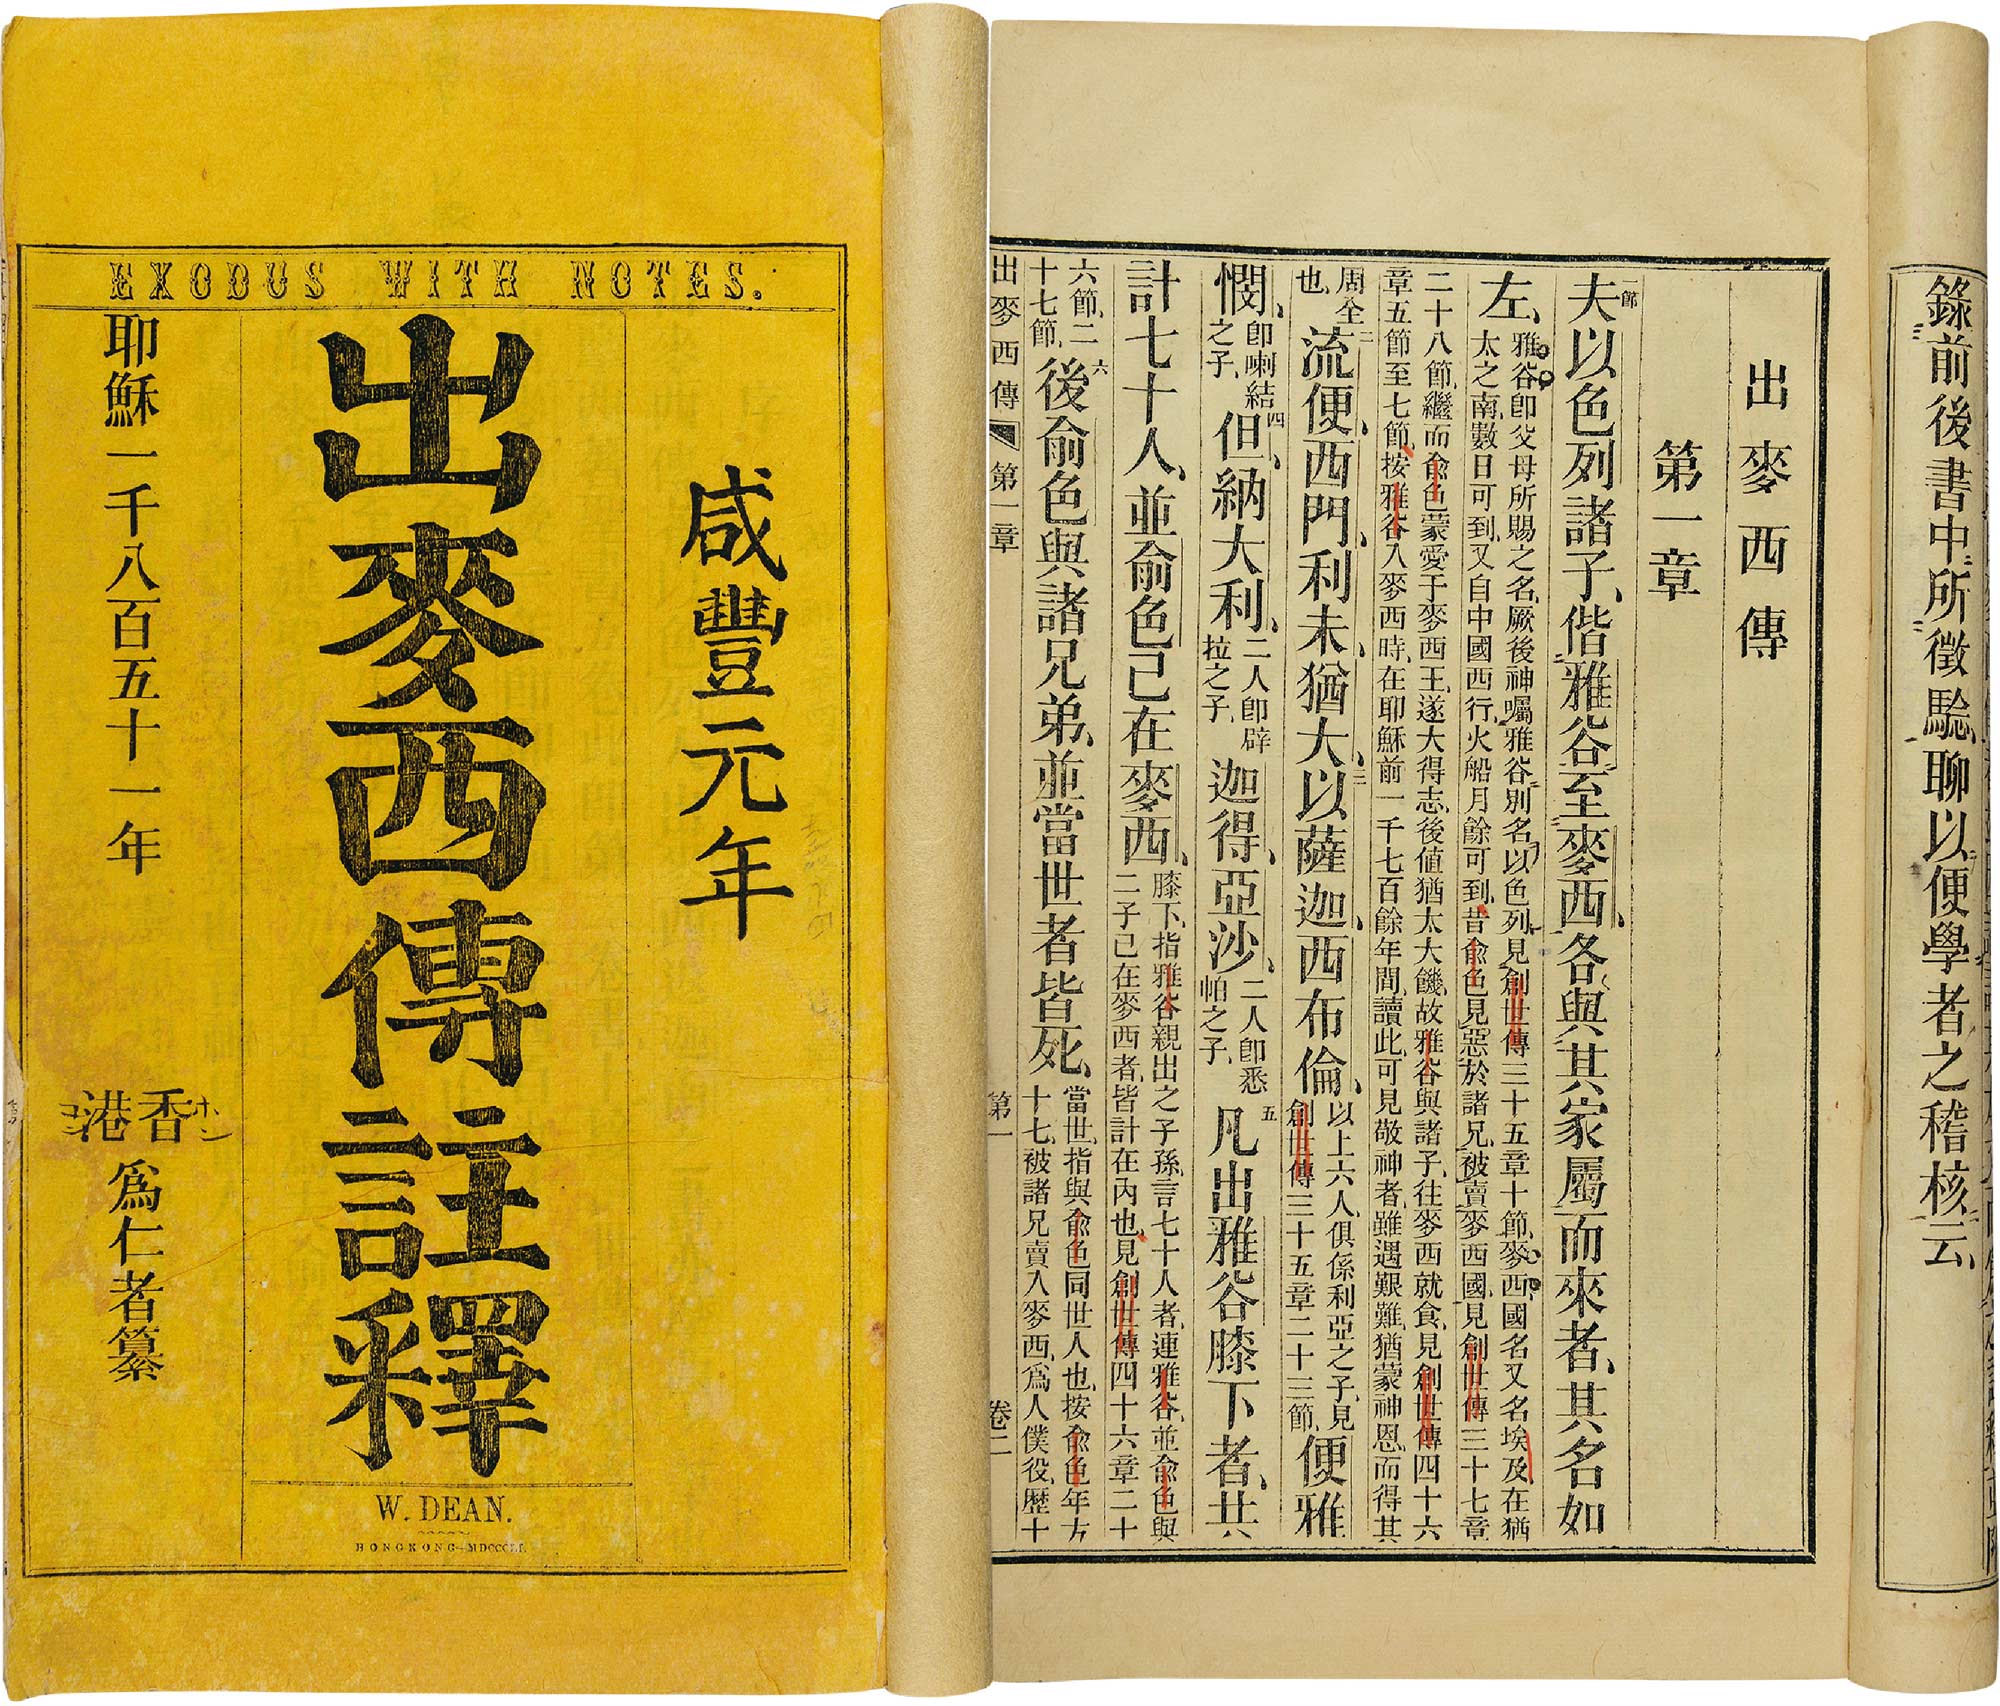 EXODUS WITH NOTES.
咸豐元年
出麥西傳註釋
耶穌一千八百五十一年
香港
ホン
コン
爲仁者纂
W. DEAN.
HONGKONG—MDCCCLI.
錄前後書中、所徵驗、聊以便學者之稽核云、
出麥西傳
第一章
一節夫以色列諸子、偕雅谷至麥西、各與其家屬而來者、其名如
左、雅谷卽父母所賜之名、厥後神囑雅谷別名、以色列、見創世傳三十五章十節、麥西國名又名埃及、在猶
太之南、數日可到、又自中國西行、火船月餘可到、昔俞色見惡於諸兄、被賣麥西國、見創世傳三十七章
二十八節、繼而俞色蒙愛于麥西王、遂大得志、後值猶太大饑、故雅谷與諸子、往麥西就食、見創世傳四十六
章五節至七節、按雅谷入麥西時、在耶穌前一千七百餘年間、讀此、可見敬神者、雖遇艱難、猶蒙神恩、而得其
周全也、二流便、西門、利未、猶大、三以薩迦、西布倫、以上六人、俱係利亞之子、見創世傳三十五章二十三節、便雅
憫、卽喇結之子、四但、納大利、二人卽辟拉之子、迦得、亞沙、二人卽悉帕之子、五凡出雅谷膝下者、共
計七十人、並俞色己在麥西、膝下、指雅谷親出之子孫、言七十人者、連雅谷、並俞色與二子已在麥西者、皆計在內也、見創世傳四十六章二十
六節、二十七節、六後俞色與諸兄弟、並當世者皆死、當世、指與俞色同世人也、按俞色年方十七、被諸兄賣入麥西、爲人僕役、歷十
出麥西傳 第一章 第一 卷二